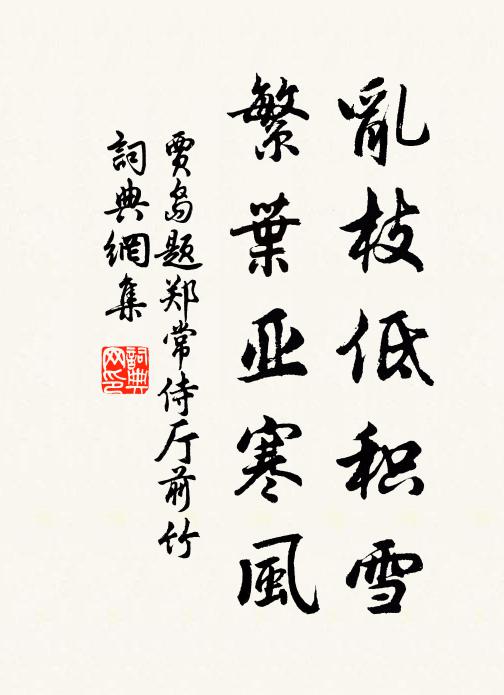 亂枝低积雪
繁葉亚寒風
贾島题郑常侍厅前竹
詞典網集
詞典网印